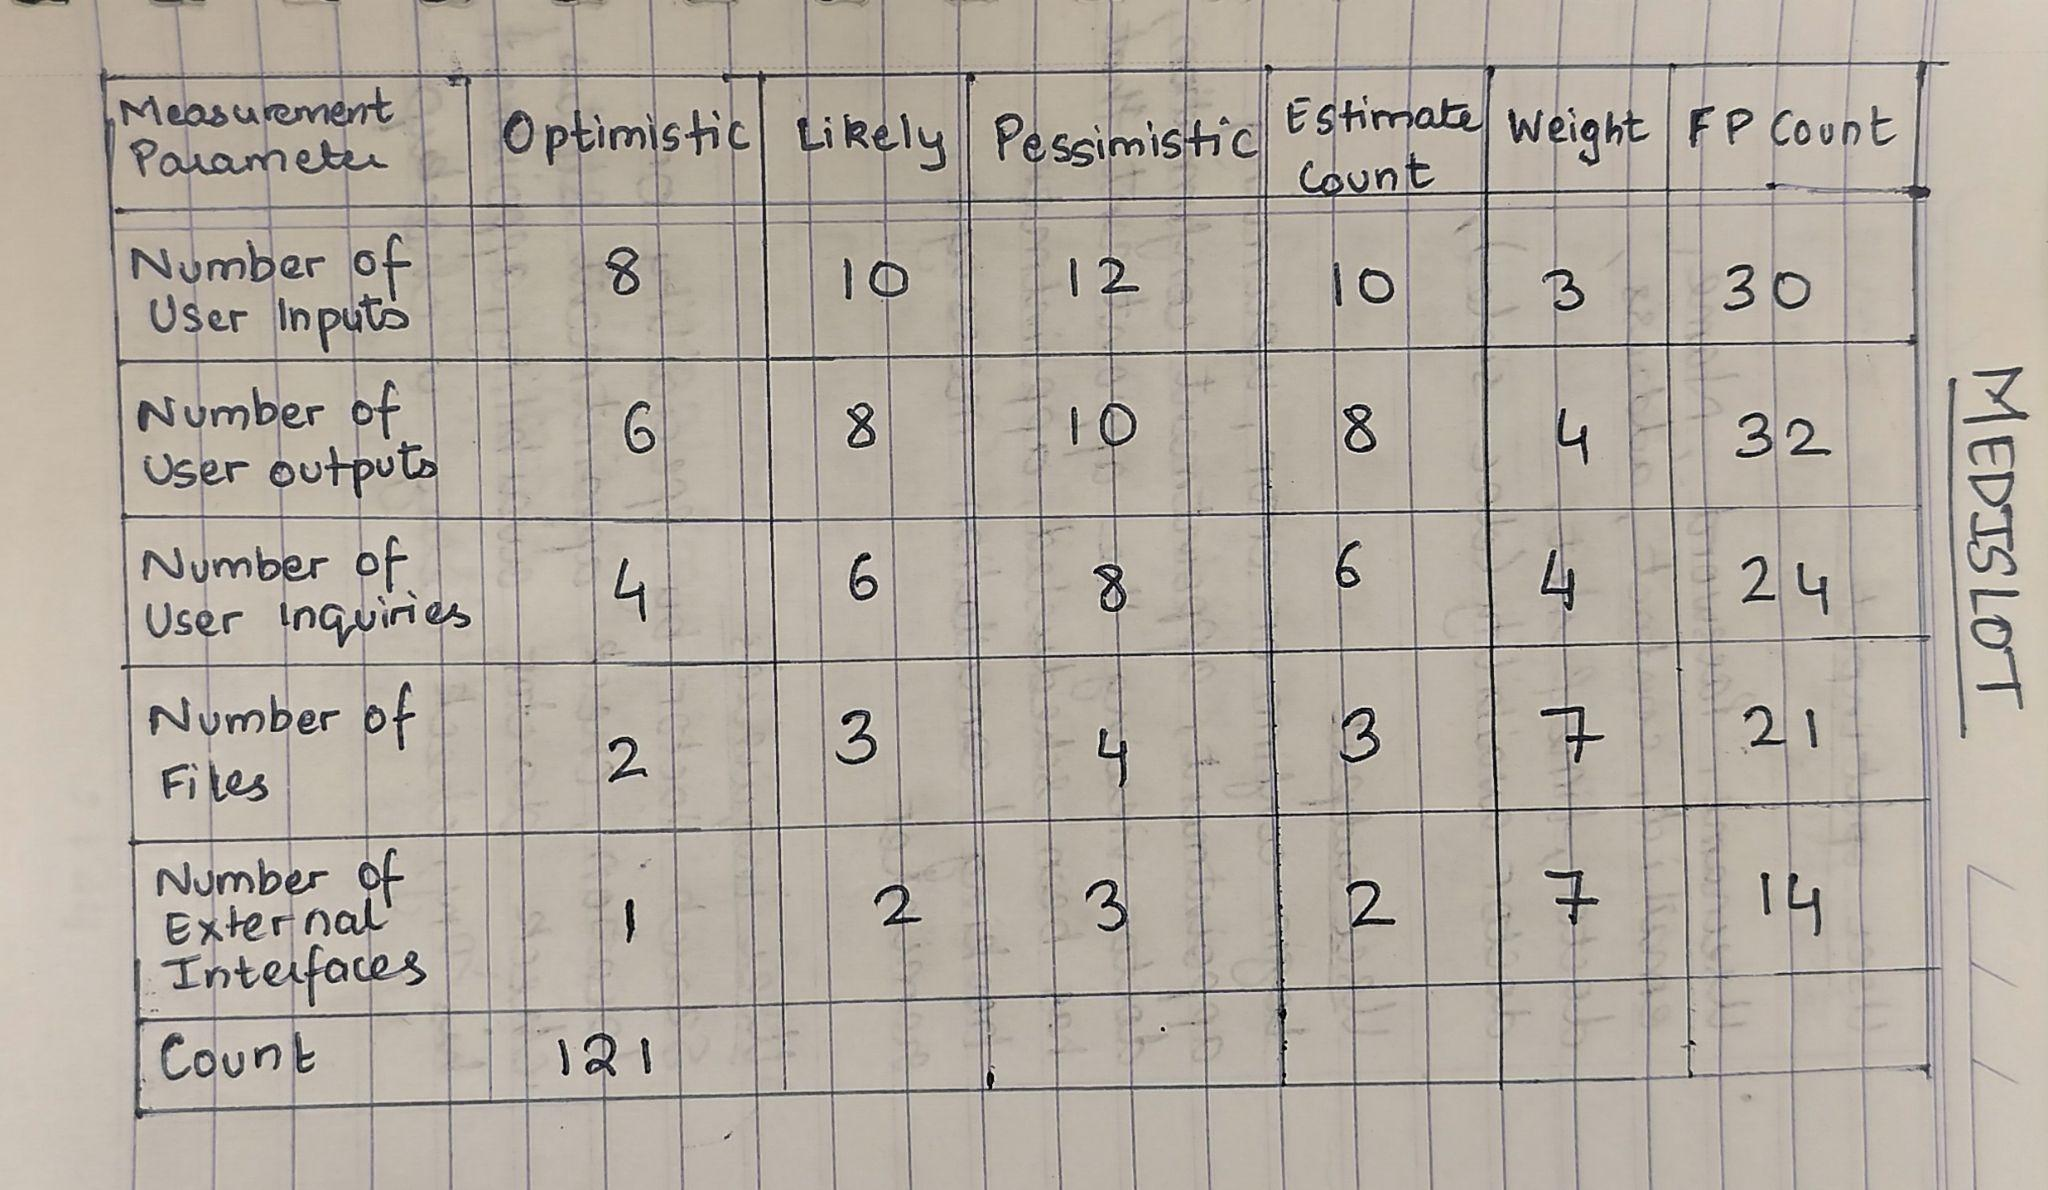 Measurement Parameter Optimistic Likely Pessimistic Estimate Count Weight FP Count
Number of User Inputs 8 10 12 10 3 30
Number of User outputs 6 8 10 8 4 32
Number of User Inquiries 4 6 8 6 4 24
Number of Files 2 3 4 3 7 21
Number of External Interfaces 1 2 3 2 7 14
Count 121
MEDISLOT